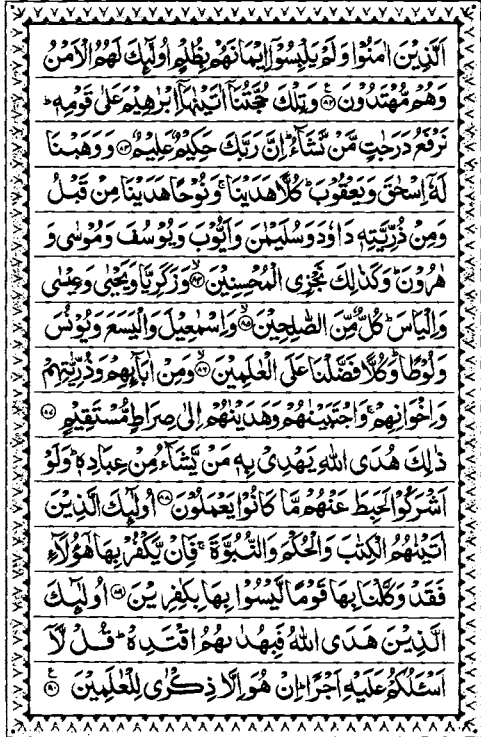 اَلَّذِيْنَ اٰمَنُوْا وَلَمْ يَلْبِسُوْۤا اِيْمَانَهُمْ بِظُلْمٍ اُولٰٓئِكَ لَهُمُ الْاَمْنُ
وَهُمْ مُّهْتَدُوْنَ ﴿۸۲﴾ وَتِلْكَ حُجَّتُنَاۤ اٰتَيْنٰهَاۤ اِبْرٰهِيْمَ عَلٰى قَوْمِهٖ ؕ
نَرْفَعُ دَرَجٰتٍ مَّنْ نَّشَآءُ ؕ اِنَّ رَبَّكَ حَكِيْمٌ عَلِيْمٌ ﴿۸۳﴾ وَوَهَبْنَا
لَهٗۤ اِسْحٰقَ وَيَعْقُوْبَ ؕ كُلًّا هَدَيْنَا ۚ وَنُوْحًا هَدَيْنَا مِنْ قَبْلُ
وَمِنْ ذُرِّيَّتِهٖ دَاوٗدَ وَسُلَيْمٰنَ وَاَيُّوْبَ وَيُوْسُفَ وَمُوْسٰى وَ
هٰرُوْنَ ؕ وَكَذٰلِكَ نَجْزِى الْمُحْسِنِيْنَ ﴿۸۴﴾ وَزَكَرِيَّا وَيَحْيٰى وَعِيْسٰى
وَاِلْيَاسَ ؕ كُلٌّ مِّنَ الصّٰلِحِيْنَ ﴿۸۵﴾ وَاِسْمٰعِيْلَ وَالْيَسَعَ وَيُوْنُسَ
وَلُوْطًا ؕ وَكُلًّا فَضَّلْنَا عَلَى الْعٰلَمِيْنَ ﴿۸۶﴾ وَمِنْ اٰبَآئِهِمْ وَذُرِّيّٰتِهِمْ
وَاِخْوَانِهِمْ ۚ وَاجْتَبَيْنٰهُمْ وَهَدَيْنٰهُمْ اِلٰى صِرَاطٍ مُّسْتَقِيْمٍ ﴿۸۷﴾
ذٰلِكَ هُدَى اللّٰهِ يَهْدِىْ بِهٖ مَنْ يَّشَآءُ مِنْ عِبَادِهٖ ؕ وَلَوْ
اَشْرَكُوْا لَحَبِطَ عَنْهُمْ مَّا كَانُوْا يَعْمَلُوْنَ ﴿۸۸﴾ اُولٰٓئِكَ الَّذِيْنَ
اٰتَيْنٰهُمُ الْكِتٰبَ وَالْحُكْمَ وَالنُّبُوَّةَ ۚ فَاِنْ يَّكْفُرْ بِهَا هٰٓؤُلَآءِ
فَقَدْ وَكَّلْنَا بِهَا قَوْمًا لَّيْسُوْا بِهَا بِكٰفِرِيْنَ ﴿۸۹﴾ اُولٰٓئِكَ
الَّذِيْنَ هَدَى اللّٰهُ فَبِهُدٰىهُمُ اقْتَدِهْ ؕ قُلْ لَّاۤ
اَسْئَلُكُمْ عَلَيْهِ اَجْرًا ؕ اِنْ هُوَ اِلَّا ذِكْرٰى لِلْعٰلَمِيْنَ ﴿۹۰﴾